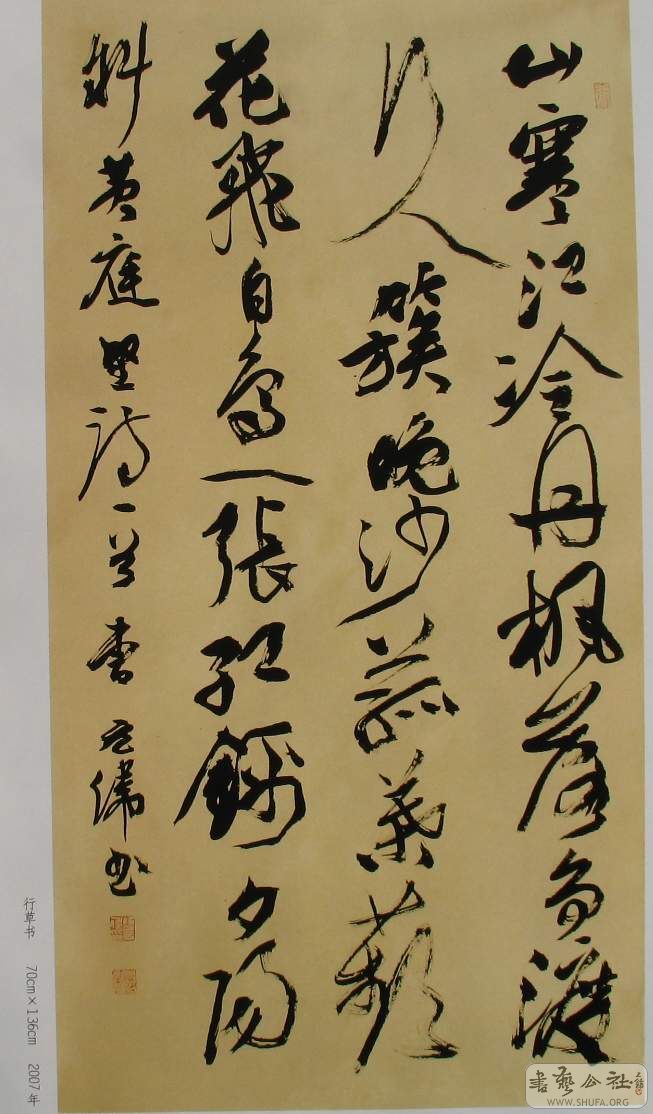 山寒江冷丹枫落争渡
行人簇晚沙菰叶蘋
花飞白鸟一张红锦夕阳
斜黄庭坚诗一首曹
伟书
行草书 70cm×136cm 2007年
书艺公社
WWW.SHUFA.ORG